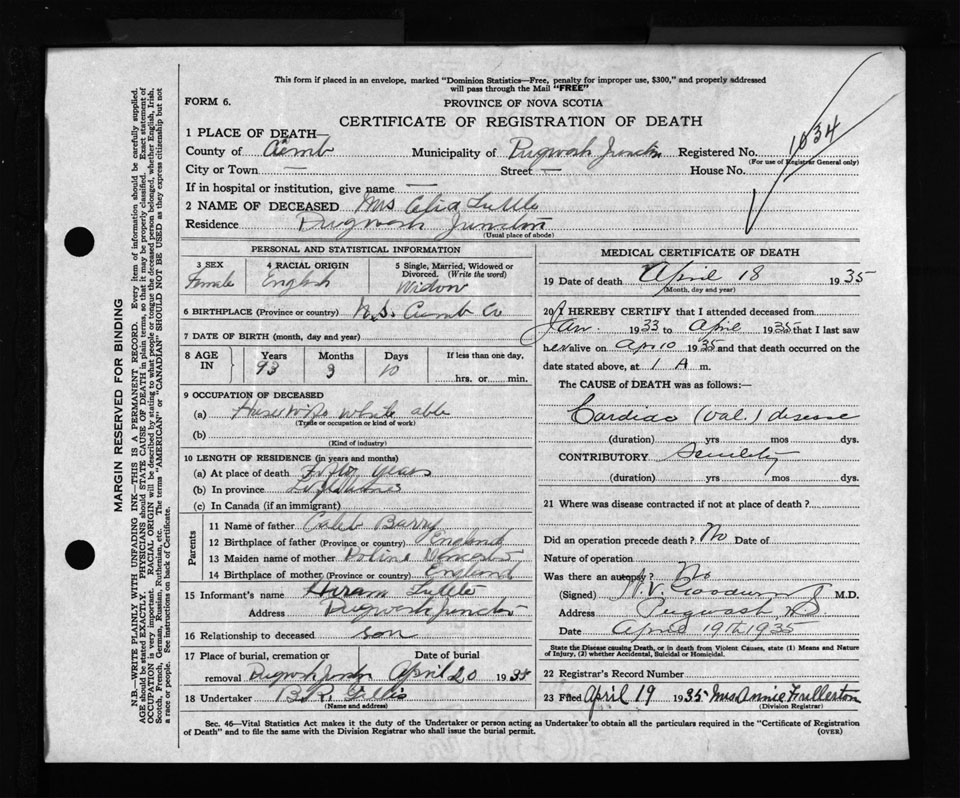 This form if placed in an envelope, marked "Dominion Statistics—Free, penalty for improper use, $300," and properly addressed
will pass through the Mail "FREE"
FORM 6.
PROVINCE OF NOVA SCOTIA
CERTIFICATE OF REGISTRATION OF DEATH
1 PLACE OF DEATH—
County of Cumb Municipality of Pugwash Junctn Registered No. 1034
(For use of Registrar General only)
City or Town — Street — House No.
If in hospital or institution, give name —
2 NAME OF DECEASED Mrs Tuttle
Residence Pugwash Junction
(Usual place of abode)
PERSONAL AND STATISTICAL INFORMATION
3 SEX Female
4 RACIAL ORIGIN English
5 Single, Married, Widowed or Divorced. (Write the word) Widow
6 BIRTHPLACE (Province or country) N.S. Cumb Co
7 DATE OF BIRTH (month, day and year)
8 AGE IN Years 93 Months 3 Days 10 If less than one day, hrs. or min.
9 OCCUPATION OF DECEASED
(a) Housewife while able
(Trade or occupation or kind of work)
(b)
(Kind of industry)
10 LENGTH OF RESIDENCE (in years and months)
(a) At place of death Fifty years
(b) In province
(c) In Canada (if an immigrant)
Parents
11 Name of father Caleb Barry
12 Birthplace of father (Province or country) England
13 Maiden name of mother
14 Birthplace of mother (Province or country) England
15 Informant's name Hiram Tuttle
Address Pugwash Junction
16 Relationship to deceased son
17 Place of burial, cremation or removal Pugwash Date of burial April 20 1935
18 Undertaker B.R.
(Name and address)
MEDICAL CERTIFICATE OF DEATH
19 Date of death April 18 1935
(Month, day and year)
20 I HEREBY CERTIFY that I attended deceased from
Jan. 1933 to April 1935 that I last saw
her alive on Ap 10 1935 and that death occurred on the
date stated above, at 1 A m.
The CAUSE of DEATH was as follows:—
Cardiac (val.) disease
(duration) yrs mos dys.
CONTRIBUTORY Senility
(duration) yrs mos dys.
21 Where was disease contracted if not at place of death?
Did an operation precede death? No Date of
Nature of operation
Was there an autopsy? No
(Signed) M.D.
Address Pugwash NS
Date April 19th 1935
State the Disease causing Death, or in death from Violent Causes, state (1) Means and Nature
of Injury, (2) whether Accidental, Suicidal or Homicidal.
22 Registrar's Record Number
23 Filed April 19 1935 Mrs Annie Fullerton
(Division Registrar)
Sec. 46—Vital Statistics Act makes it the duty of the Undertaker or person acting as Undertaker to obtain all the particulars required in the "Certificate of Registration
of Death" and to file the same with the Division Registrar who shall issue the burial permit.
(OVER)
MARGIN RESERVED FOR BINDING
N.B.—WRITE PLAINLY WITH UNFADING INK—THIS IS A PERMANENT RECORD. Every item of information should be carefully supplied.
AGE should be stated EXACTLY. PHYSICIANS should STATE CAUSE OF DEATH in plain terms, so that it may be properly classified. Exact statement of
OCCUPATION is very important. RACIAL ORIGIN will be described by stating to what people or tongue the deceased person belonged, whether English, Irish,
Scotch, French, German, Russian, Ruthenian, etc. The terms "AMERICAN" or "CANADIAN" SHOULD NOT BE USED as they express citizenship but not
a race or people. See instructions on back of Certificate.